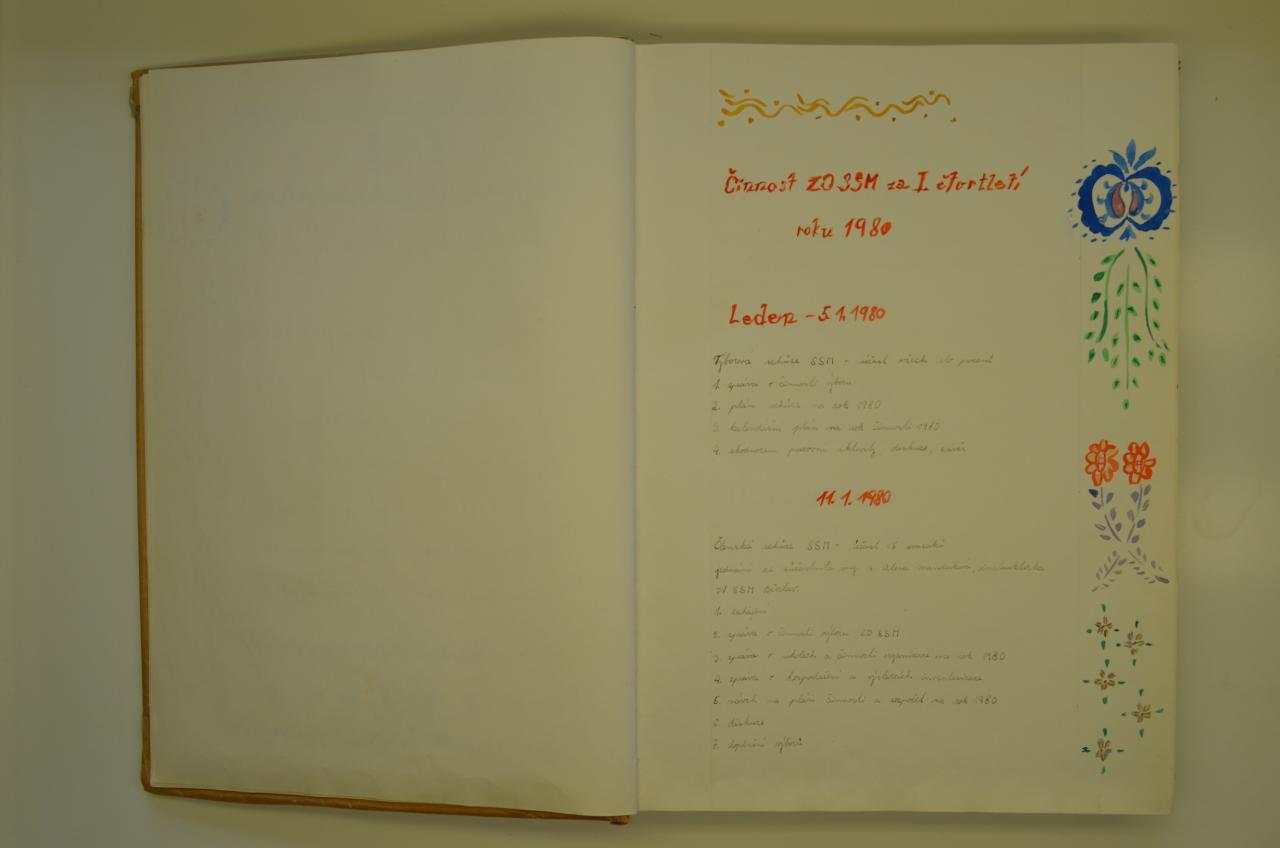 Činnost ZO SSM za I čtvrtletí
roku 1980
Leden - 5.1.1980
Výborová schůze SSM - účast všech sto procent
1. zpráva o činnosti výboru
2. plán schůze na rok 1980
3. kalendářní plán na rok činnosti 1980
4. zhodnocení pracovní aktivity, diskuze, závěr
11. 1. 1980
Členská schůze SSM - účast 16 svazáků
jednání se zúčastnila i
OV SSM
1. zahájení
2. zpráva o činnosti výboru ZO SSM
3. zpráva o úkolech a činnosti organizace na rok 1980
4. zpráva o hospodaření a výsledcích inventarizace
5. návrh na plán činnosti a rozpočet na rok 1980
6. diskuze
7. doplnění výboru